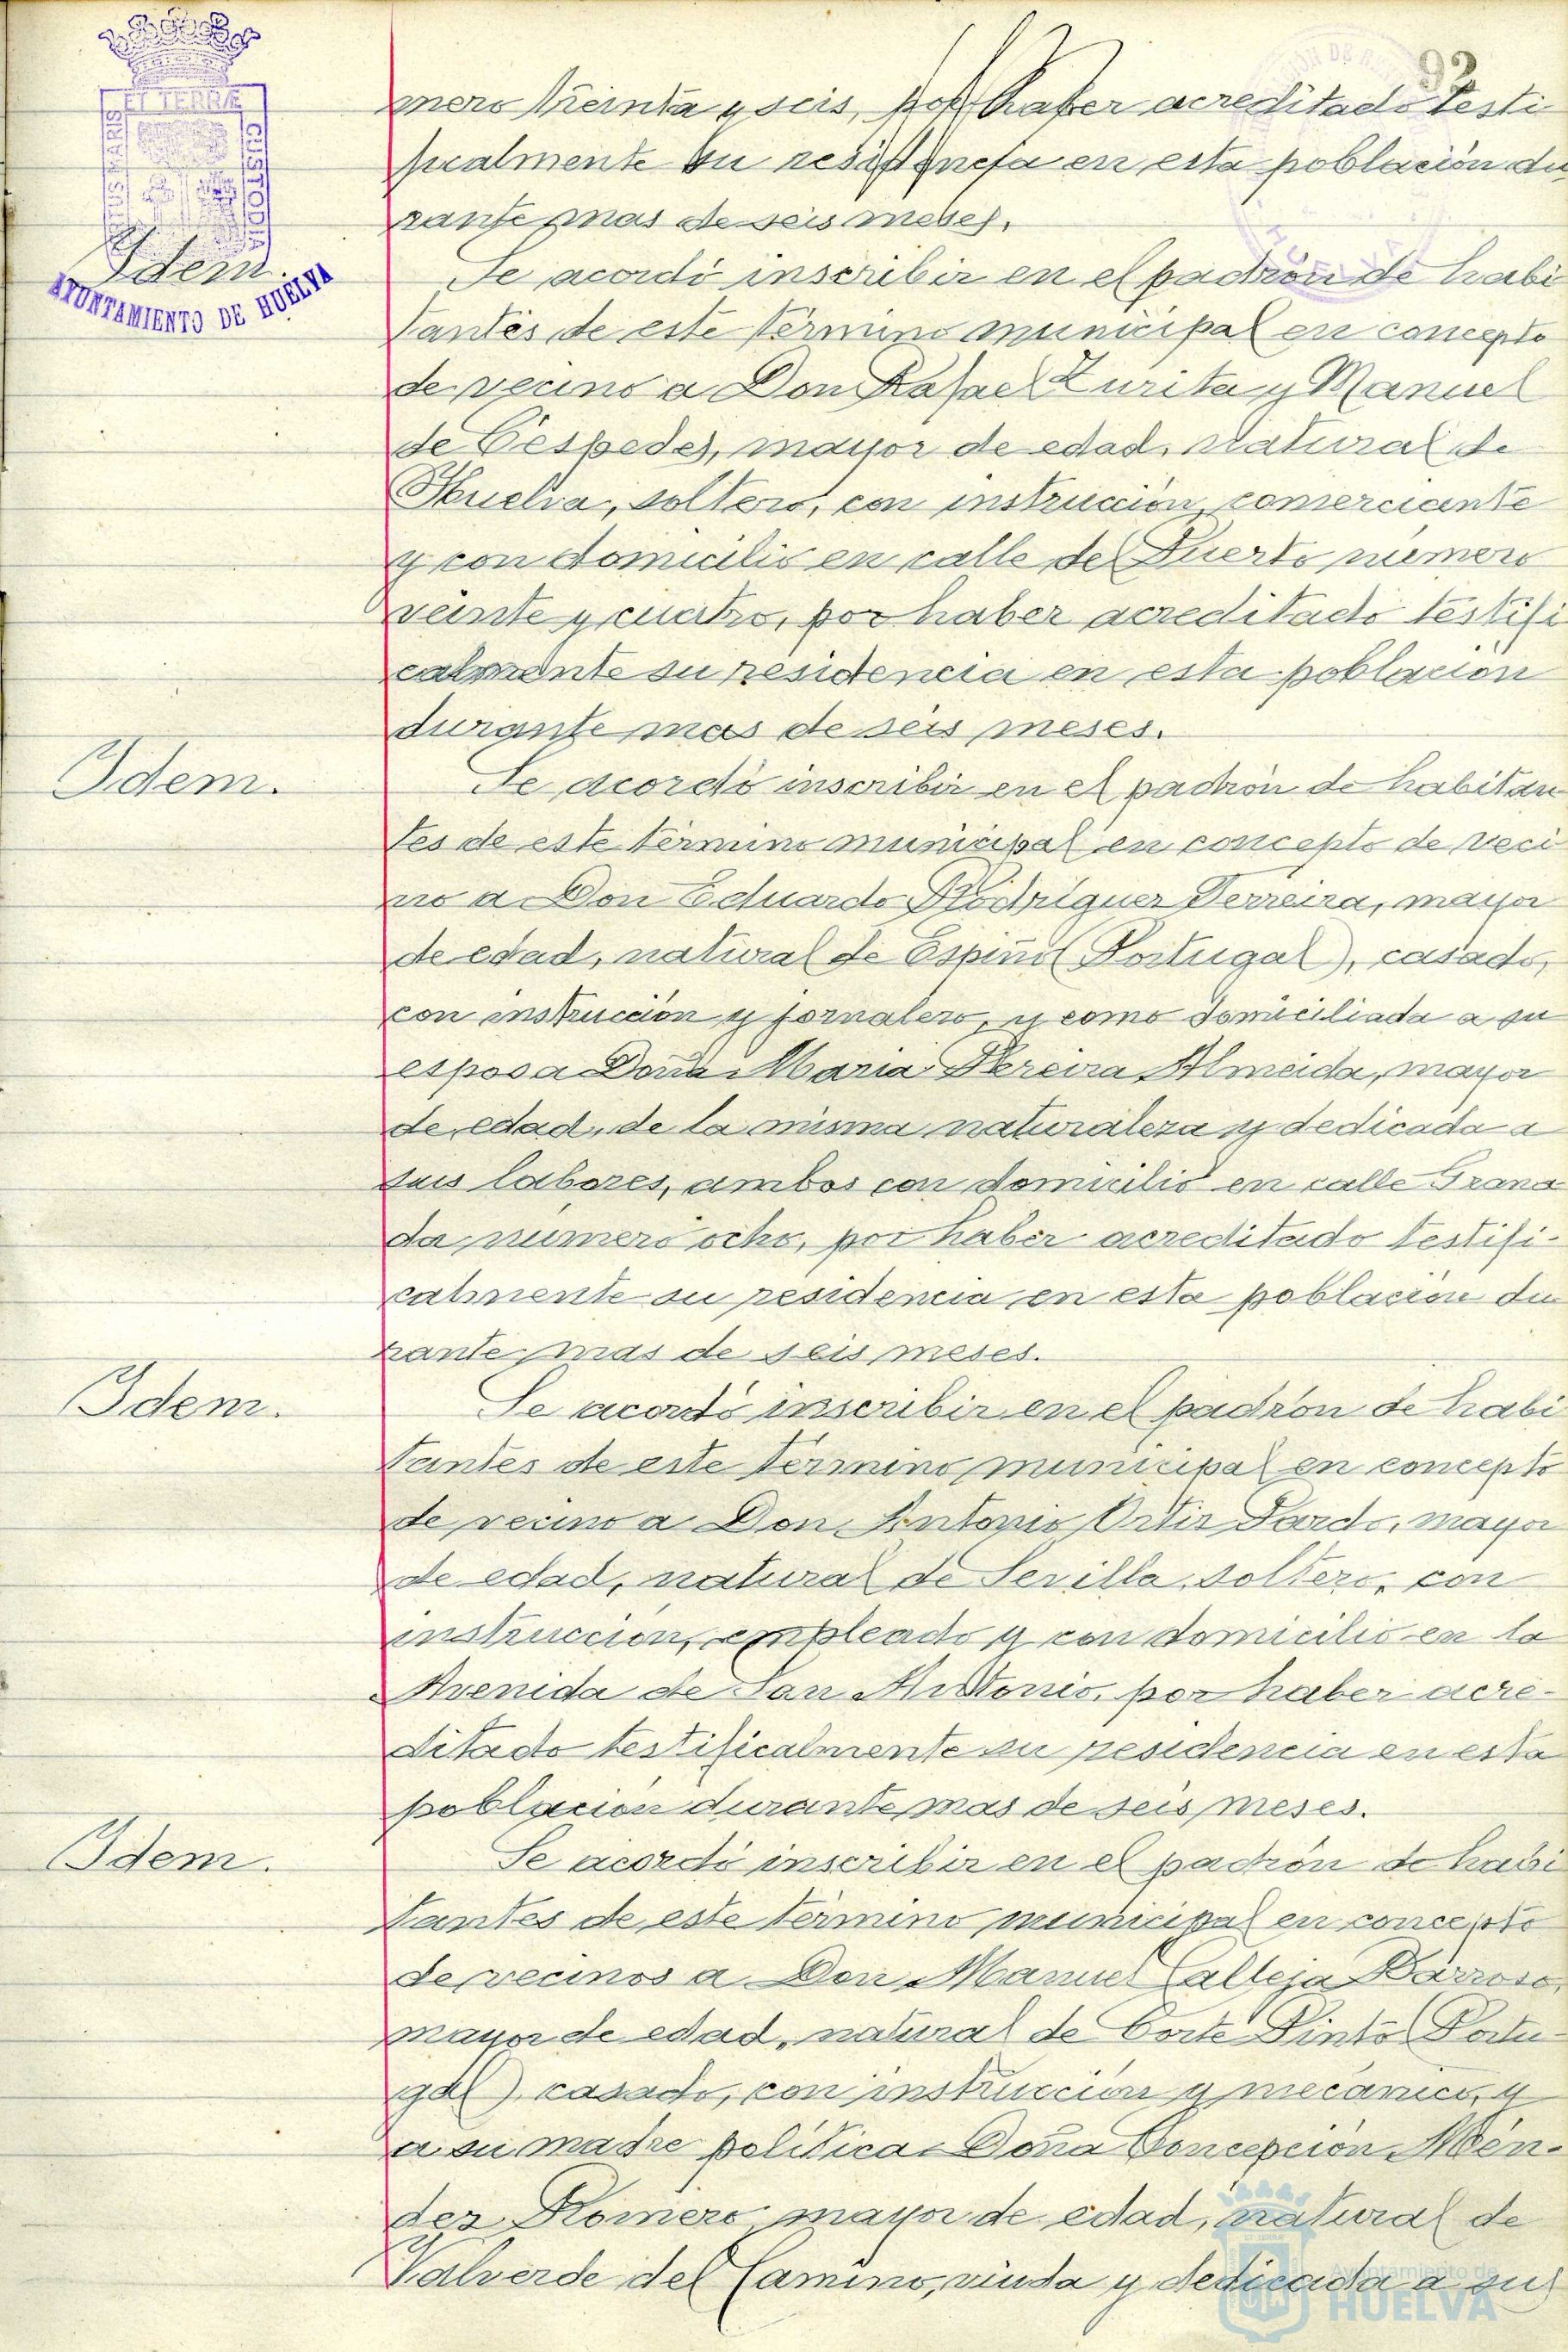 92
mero treinta y seis, por haber acreditado testi
ficalmente su residencia en esta población du
rante mas de seis meses.
ET TERRÆ
Idem.
AYUNTAMIENTO DE HUELVA
Se acordó inscribir en el padrón de habi
tantes de este término municipal en concepto
de vecino a Don Rafael Zurita y Manuel
de Céspedes, mayor de edad, natural de
Huelva, soltero, con instrucción, comerciante
y con domicilio en calle del Puerto número
veinte y cuatro, por haber acreditado testifi
calmente su residencia en esta población
durante mas de seis meses.
Idem.
Se acordó inscribir en el padrón de habitan
tes de este término municipal en concepto de veci
no a Don Eduardo Rodriguez Ferreira, mayor
de edad, natural de (Portugal), casado,
con instrucción y jornalero, y como domiciliada a su
esposa Doña Maria Pereira Almeida, mayor
de edad, de la misma naturaleza y dedicada a
sus labores, ambos con domicilio en calle Grana
da número ocho, por haber acreditado testifi-
calmente su residencia en esta población du
rante mas de seis meses.
Idem.
Se acordó inscribir en el padrón de habi
tantes de este término municipal en concepto
de vecino a Don Antonio Ortiz Pardo, mayor
de edad, natural de Sevilla, soltero, con
instrucción, empleado y con domicilio en la
Avenida de San Antonio, por haber acre-
ditado testificalmente su residencia en esta
población durante mas de seis meses.
Idem.
Se acordó inscribir en el padrón de habi
tantes de este término municipal en concepto
de vecinos a Don Manuel Calleja Barroso,
mayor de edad, natural de Corte Pinto (Portu-
gal), casado, con instrucción y mecánico, y
a su madre política Doña Concepción Mén-
dez Romero mayor de edad, natural de
Valverde del Camino, viuda y dedicada a sus
Ayuntamiento de
HUELVA